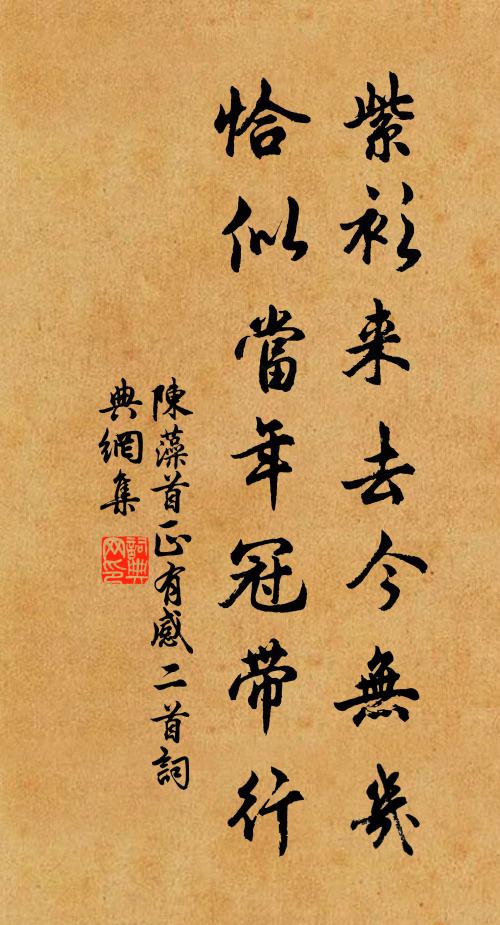 紫衫来去今無幾
恰似當年冠帶行
陳藻首正有感二首詞
典網集
詞典網印